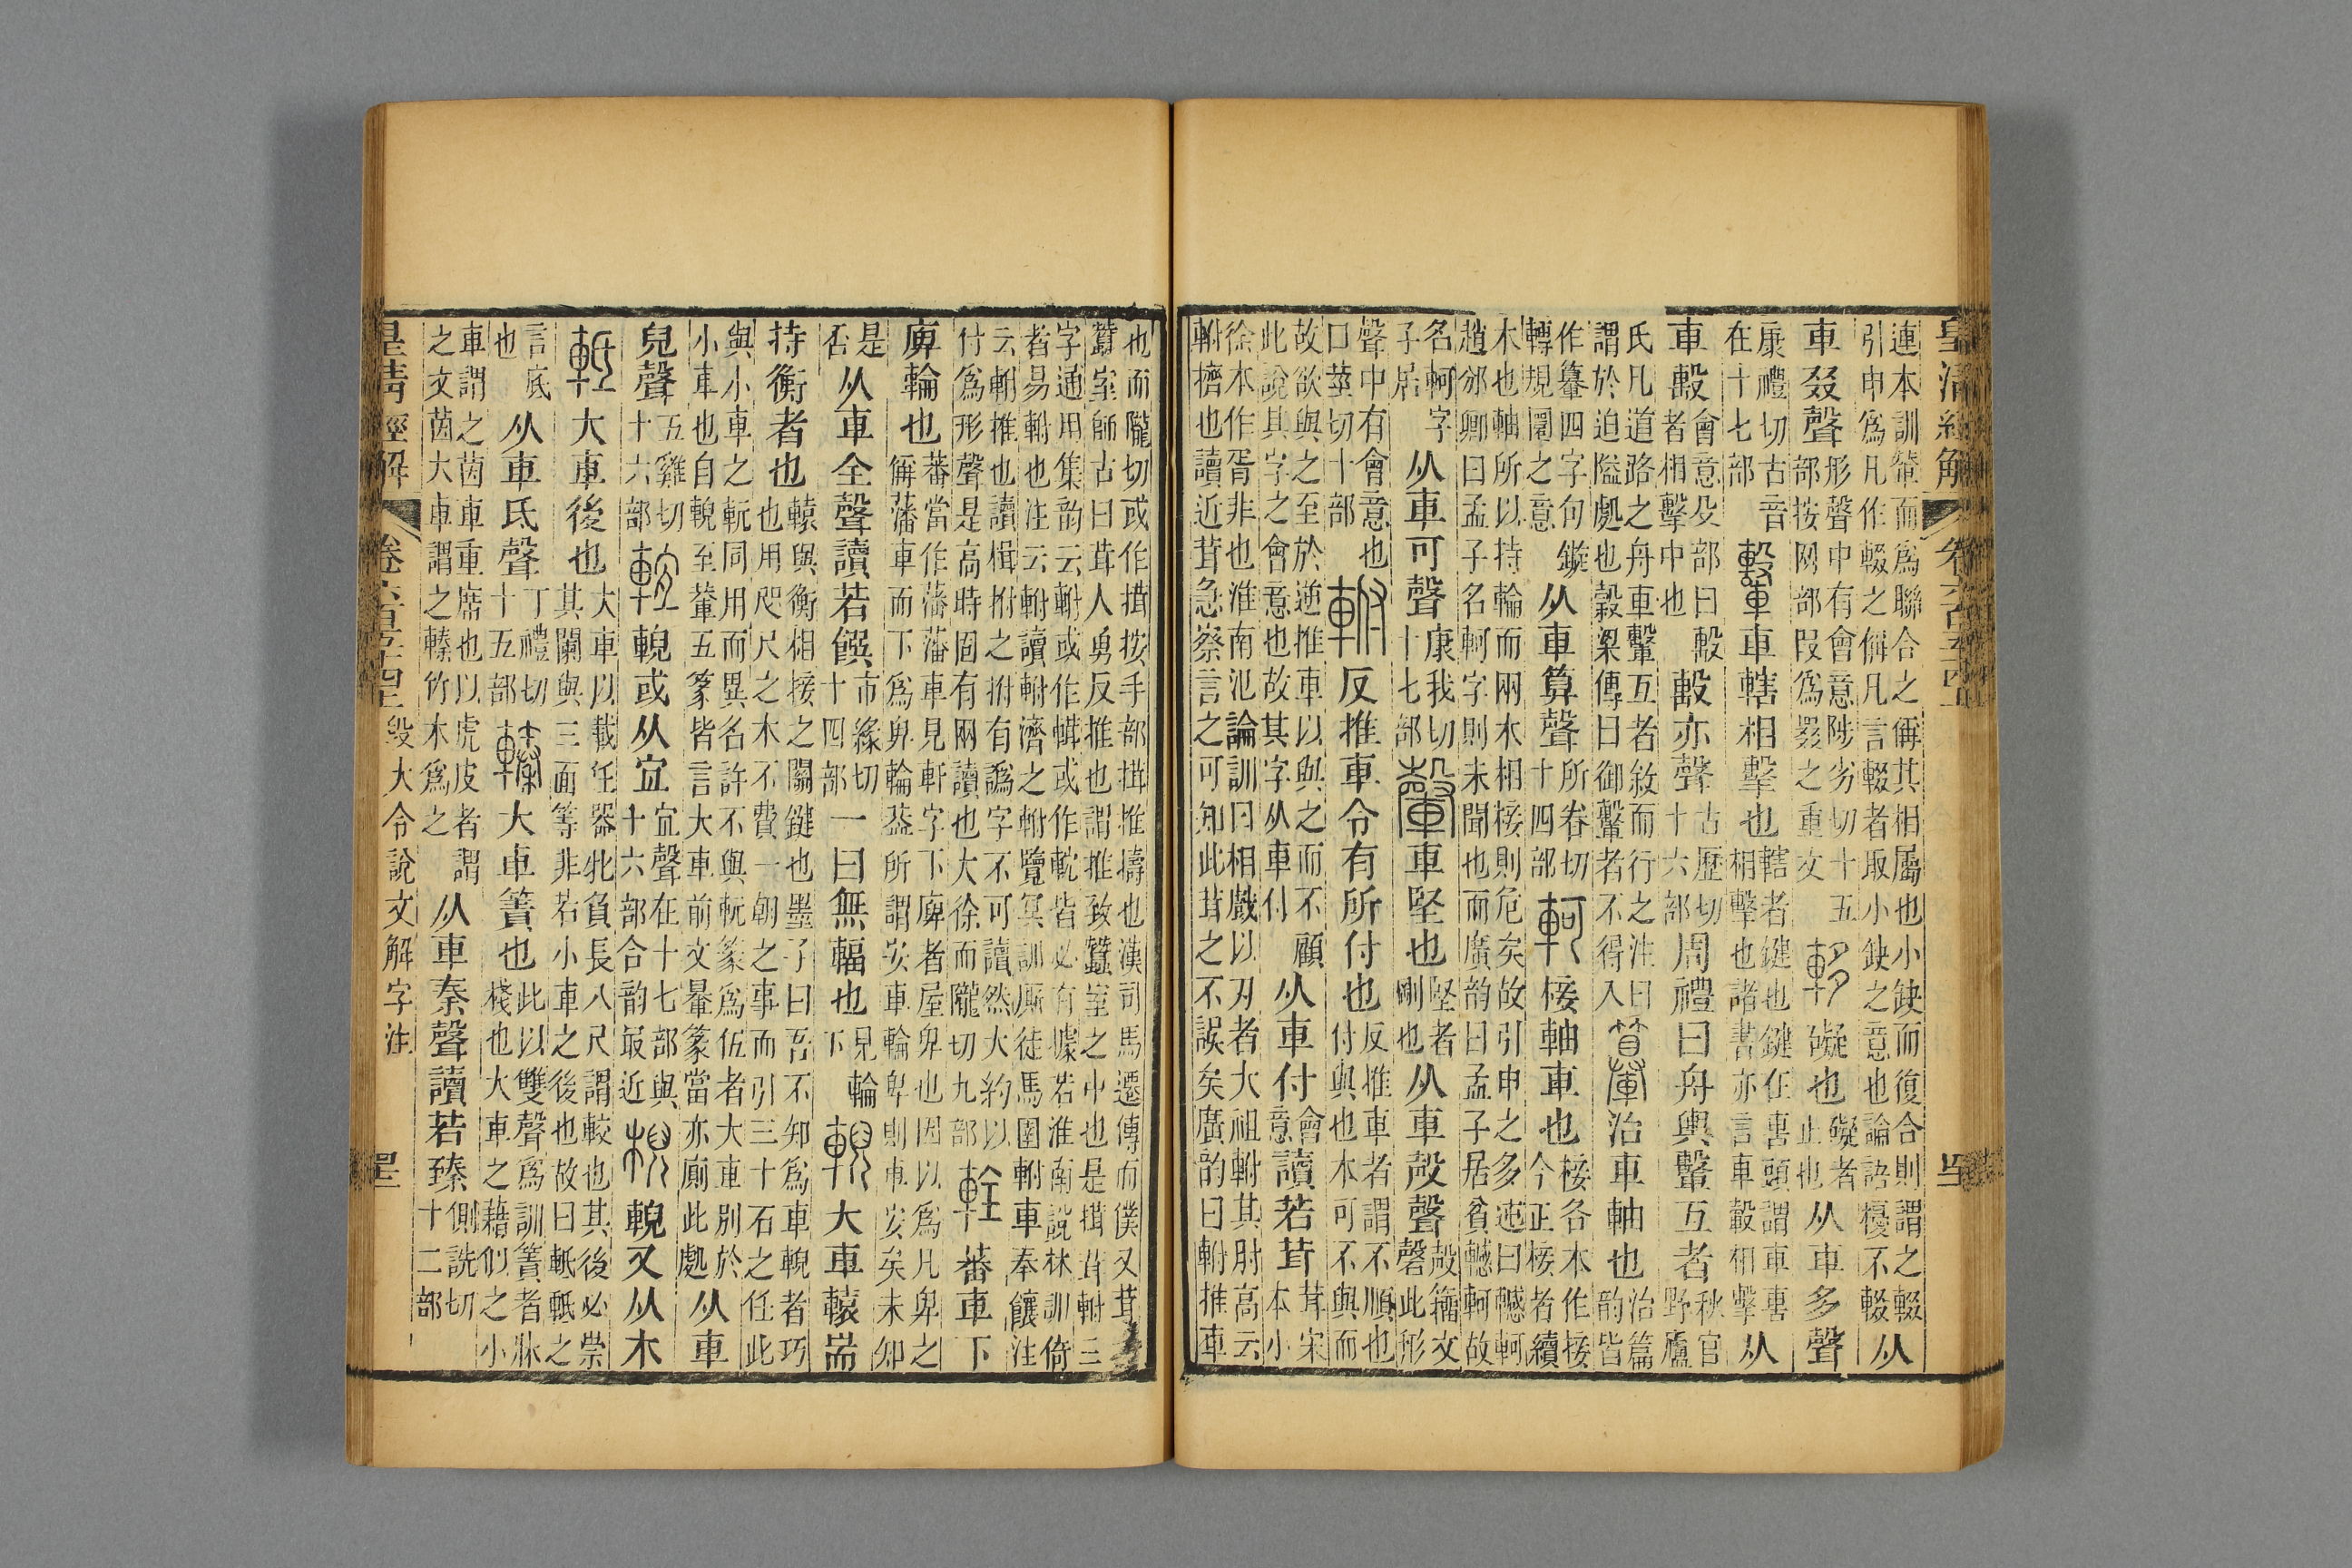 皇清經解 卷六百五十四上
連本訓輦而爲聯合之偁其相屬也小缺而復合則謂之輟
引申爲凡作輟之偁凡言輟者取小缺之意也論語耰不輟 从
車叕聲 形聲中有會意陟劣切十五
部按网部叕爲罬之重文 䡔 礙也 礙者
止也 从車多聲
康禮切古音
在十七部 轚 車轄相擊也 轄者鍵也鍵在軎頭謂車軎
相擊也諸書亦言車轂相擊 从
車毄 會意殳部曰毄
者相擊中也 毄亦聲 古歷切
十六部 周禮曰舟輿轚互者 秋官
野廬
氏凡道路之舟車轚互者敘而行之注曰
謂於迫隘處也穀梁傳曰御轚者不得入 治車軸也 治篇
韵皆
作纂四字句鏇
轉規圜之意 从車算聲 所眷切
十四部 軻 椄軸車也 椄各本作接
今正椄者續
木也軸所以持輪而兩木相椄則危矣故引申之多迍曰轗軻
趙邠卿曰孟子名軻字則未聞也而廣韵曰孟子居貧轗軻故
名軻字
子居 从車可聲 康我切
十七部 車堅也 堅者
剛也 从車殸聲 殸籒文
磬此形
聲中有會意也
口莖切十部 軵 反推車令有所付也 反推車者謂不順也
付與也本可不與而
故欲與之至於逆推車以與之而不顧
此說其字之會意也故其字从車付 从車付 會
意 讀若茸 茸宋
本小
徐本作胥非也淮南氾論訓曰相戲以刃者大祖軵其肘高云
軵擠也讀近茸急蔡言之可知此茸之不誤矣廣韵曰軵推車
也而隴切或作搑按手部搑推擣也漢司馬遷傳而僕又茸之
蠶室師古曰茸人勇反推也謂推致蠶室之中也是搑茸軵三
字通用集韵云軵或作皆必有據若淮南說林訓倚
者易軵也注云軵讀軵濟之軵覽冥訓厮徒馬圉軵車奉饟注
云軵推也讀楫拊之拊有譌字不可讀然大約以
付爲形聲是高時固有兩讀也大徐而隴切九部 輇 蕃車下
庳輪也 蕃當作藩藩車見軒字下庳者屋卑也因以爲凡卑之
偁藩車而下爲卑輪葢所謂安車輪卑則車安矣未知
是
否 从車全聲讀若饌 市緣切
十四部 一曰無輻也 見輪
下 輗 大車轅耑
持衡者也 轅與衡相接之關鍵也墨子曰吾不知爲車輗者巧
也用咫尺之木不費一朝之事而引三十石之任此
與小車之軏同用而異名許不與軏篆爲伍者大車別於
小車也自輗至輂五篆皆言大車前文轝篆當亦廁此處 从車
兒聲 五雞切
十六部 輗或从宜 宜聲在十七部與
十六部合韵冣近 棿 輗又从木
軧 大車後也 大車以載任器牝負長八尺謂較也其後必崇
其闌與三面等非若小車之後也故曰軧軧之
言底
也 从車氐聲 丁禮切
十五部 轃 大車簀也 此以雙聲爲訓簀者牀
棧也大車之藉似之小
車謂之茵車重席也以虎皮者謂
之文茵大車謂之轃竹木爲之 从車秦聲讀若臻 側詵切
十二部
皇清經解 卷六百五十四上 段大令說文解字注